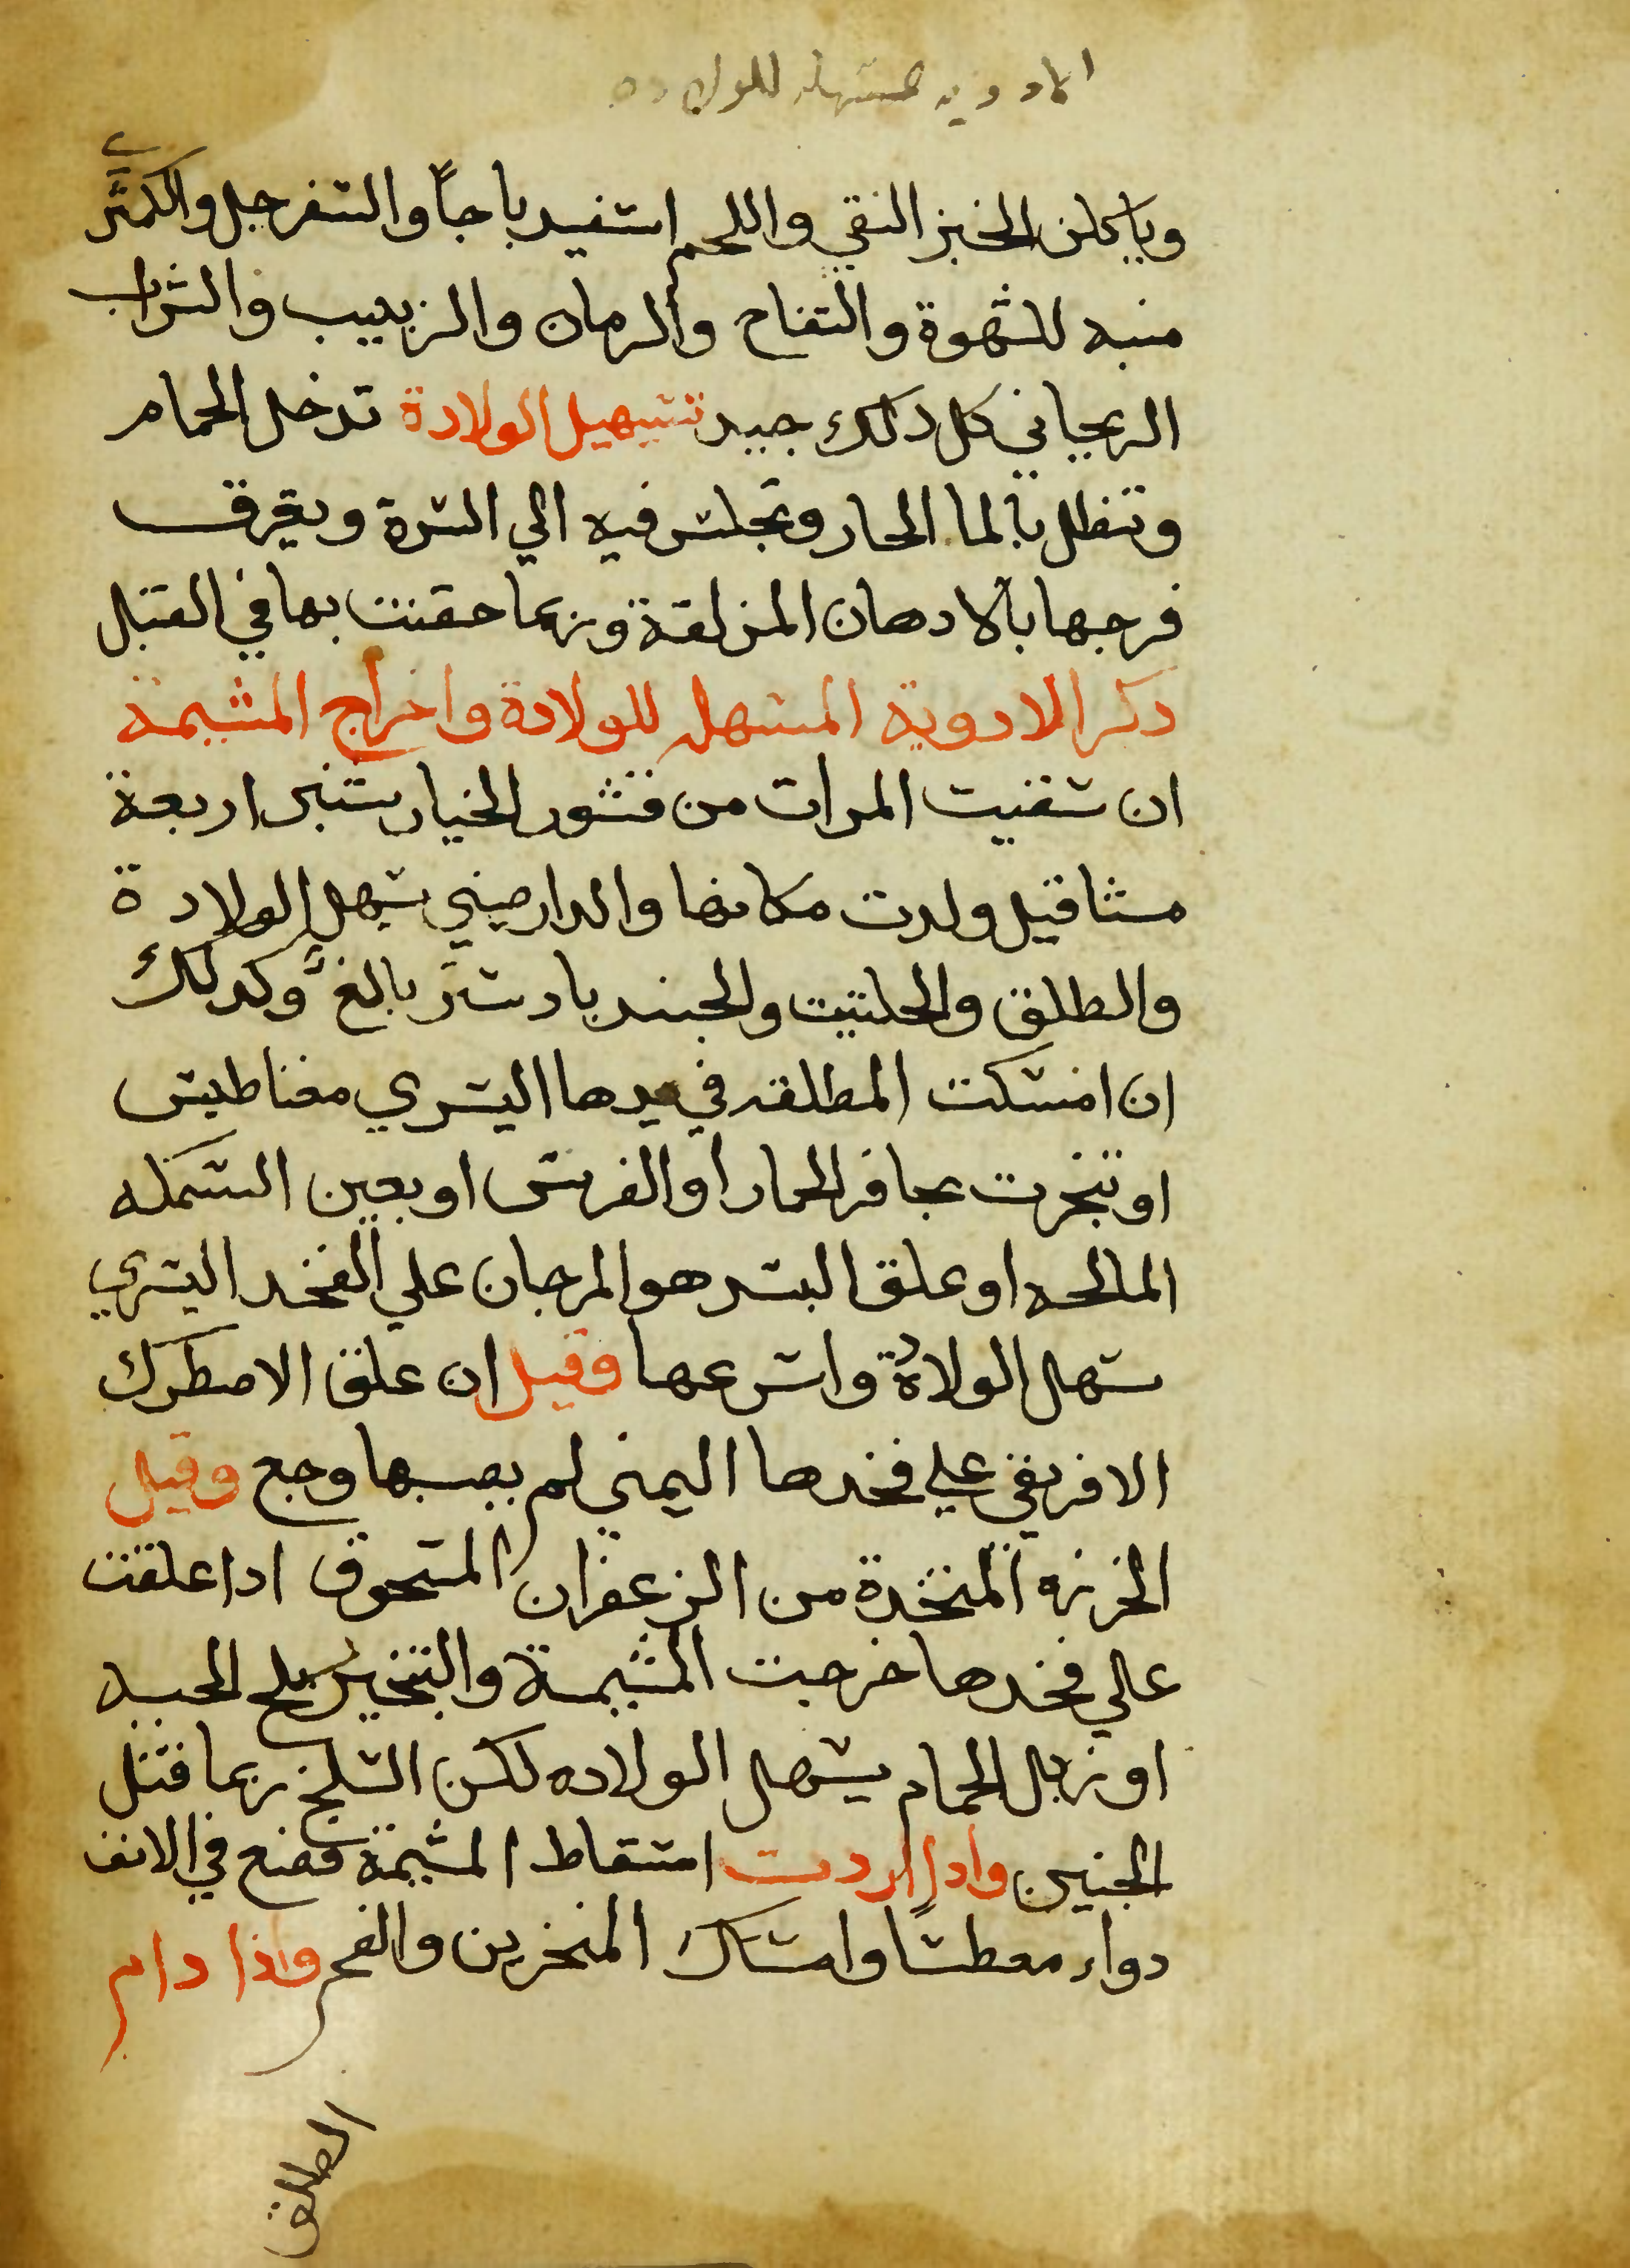 الادويه المسهله للولاده
وياكلن الخبز النقي واللحم اسفيدباجاً والسفرجل والكمثري
منبه للشهوة والتفاح والرمان والزبيب والشراب
الريحاني كل دلك جيد تسهيل الولادة تدخل الحمام
وتنطل بالما الحار وتجلس فيه الي السرة ويغرق
فرجها بالادهان المزلقة وربما حقنت بها في القبل
دكر الادوية المسهله للولادة واخراج المشيمة
ان سقيت المرات من قشور الخيار شنبر اربعة
مثاقيل ولدت مكانها والدارصيني يسهل الولادة
والطلق والحلتيت والجندبادستر بالغ وكدلك
ان امسكت المطلقه في يدها اليسري مغناطيس
او تبخرت بحافر الحمار او الفرس او بعين السمكه
المالحه او علق البسد هو المرجان علي الفخد اليسري
سهل الولادة واسرعها وقيل ان علق الاصطرك
الافريقي علي فخدها اليمني لم يصبها وجع وقيل
الخرزه المتخدة من الزعفران المسحوق ادا علقت
علي فخدها خرجت المشيمة والتبخير بسلخ الحيه
او زبل الحمام يسهل الولاده لكن السلخ ربما قتل
الجنين وادا اردت اسقاط المشيمة فضع في الانف
دواء معطسًا وامساك المنخرين والفم واذا دام
الطلق